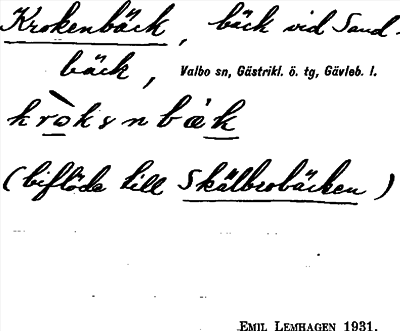 Krokenbäck, bäck vid Sand-
bäck, Valbo sn, Gästrikl. ö. tg, Gävleb. l.
kròksnbák
(biflöde till Skälbrobäcken)
EMIL LEMHAGEN 1931.